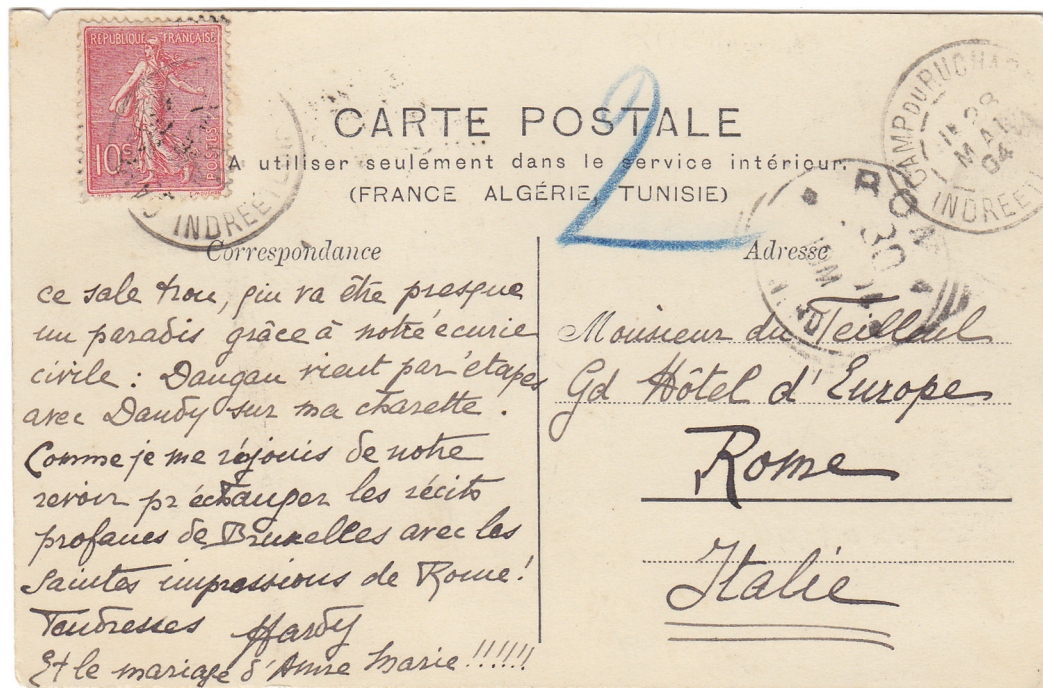 REPUBLIQUE FRANÇAISE
10c
POSTES
CARTE POSTALE
A utiliser seulement dans le service intérieur.
(FRANCE ALGÉRIE, TUNISIE)
2
CAMP DU RUCHARD
28
MAI
04
INDRE ET
INDRE ET L
ROMA
30
Correspondance
ce sale trou, qui va être presque
un paradis grâce à notre écurie
civile : Daugau vient par étapes
avec Dandy sur ma charette.
Comme je me réjouis de notre
revoir pr échanger les récits
profanes de Bruxelles avec les
Saintes impressions de Rome!
Tendresses Hardy
Et le mariage d'Anne Marie !!!!!!
Adresse
Monsieur du Teilleul
Gd Hôtel d'Europe
Rome
Italie